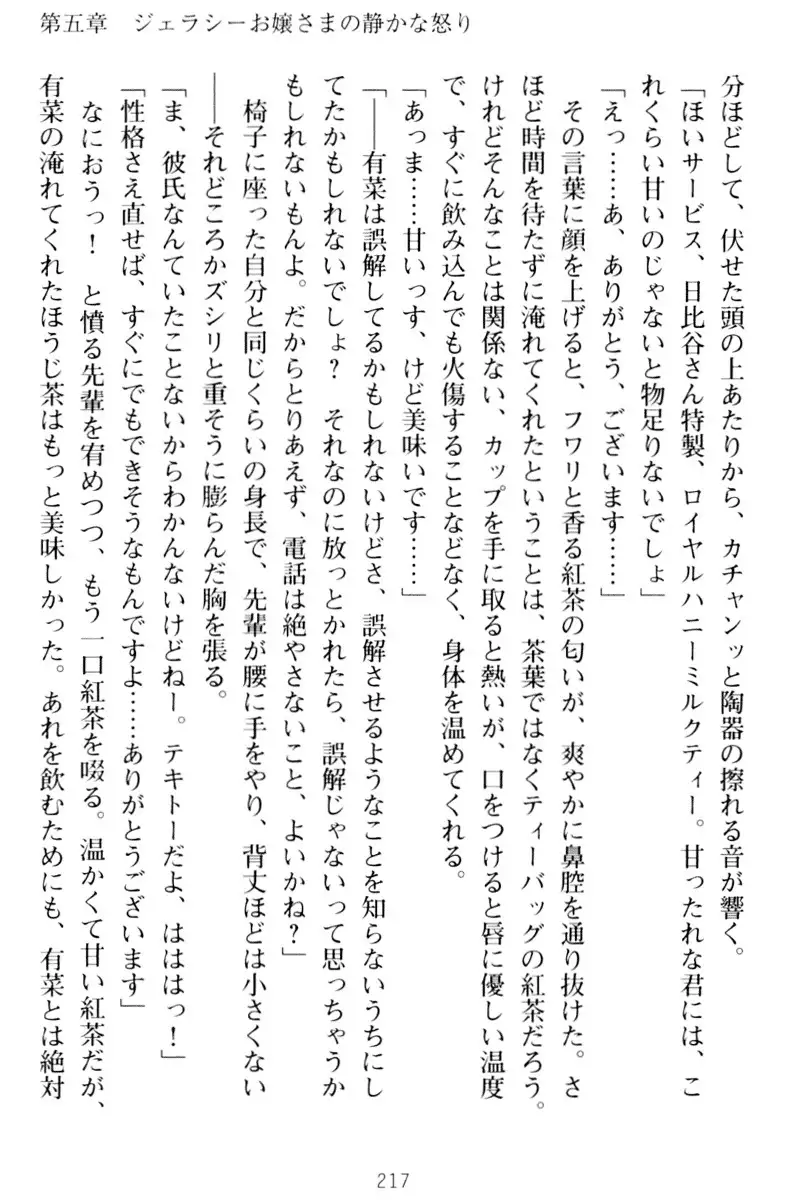 第五章　ジェラシーお嬢さまの静かな怒り
分ほどして、伏せた頭の上あたりから、カチャンッと陶器の擦れる音が響く。
「ほいサービス、日比谷さん特製、ロイヤルハニーミルクティー。甘ったれな君には、こ
れくらい甘いのじゃないと物足りないでしょ」
「えっ……あ、ありがとう、ございます……」
その言葉に顔を上げると、フワリと香る紅茶の匂いが、爽やかに鼻腔を通り抜けた。さ
ほど時間を待たずに淹れてくれたということは、茶葉ではなくティーバッグの紅茶だろう。
けれどそんなことは関係ない、カップを手に取ると熱いが、口をつけると唇に優しい温度
で、すぐに飲み込んでも火傷することなどなく、身体を温めてくれる。
「あっま……甘いっす、けど美味いです……」
「――有菜は誤解してるかもしれないけどさ、誤解させるようなことを知らないうちにし
てたかもしれないでしょ？　それなのに放っとかれたら、誤解じゃないって思っちゃうか
もしれないもんよ。だからとりあえず、電話は絶やさないこと、よいかね？」
椅子に座った自分と同じくらいの身長で、先輩が腰に手をやり、背丈ほどは小さくない
――それどころかズシリと重そうに膨らんだ胸を張る。
「ま、彼氏なんていたことないからわかんないけどねー。テキトーだよ、はははっ！」
「性格さえ直せば、すぐにでもできそうなもんですよ……ありがとうございます」
なにおうっ！　と憤る先輩を宥めつつ、もう一口紅茶を啜る。温かくて甘い紅茶だが、
有菜の淹れてくれたほうじ茶はもっと美味しかった。あれを飲むためにも、有菜とは絶対
217